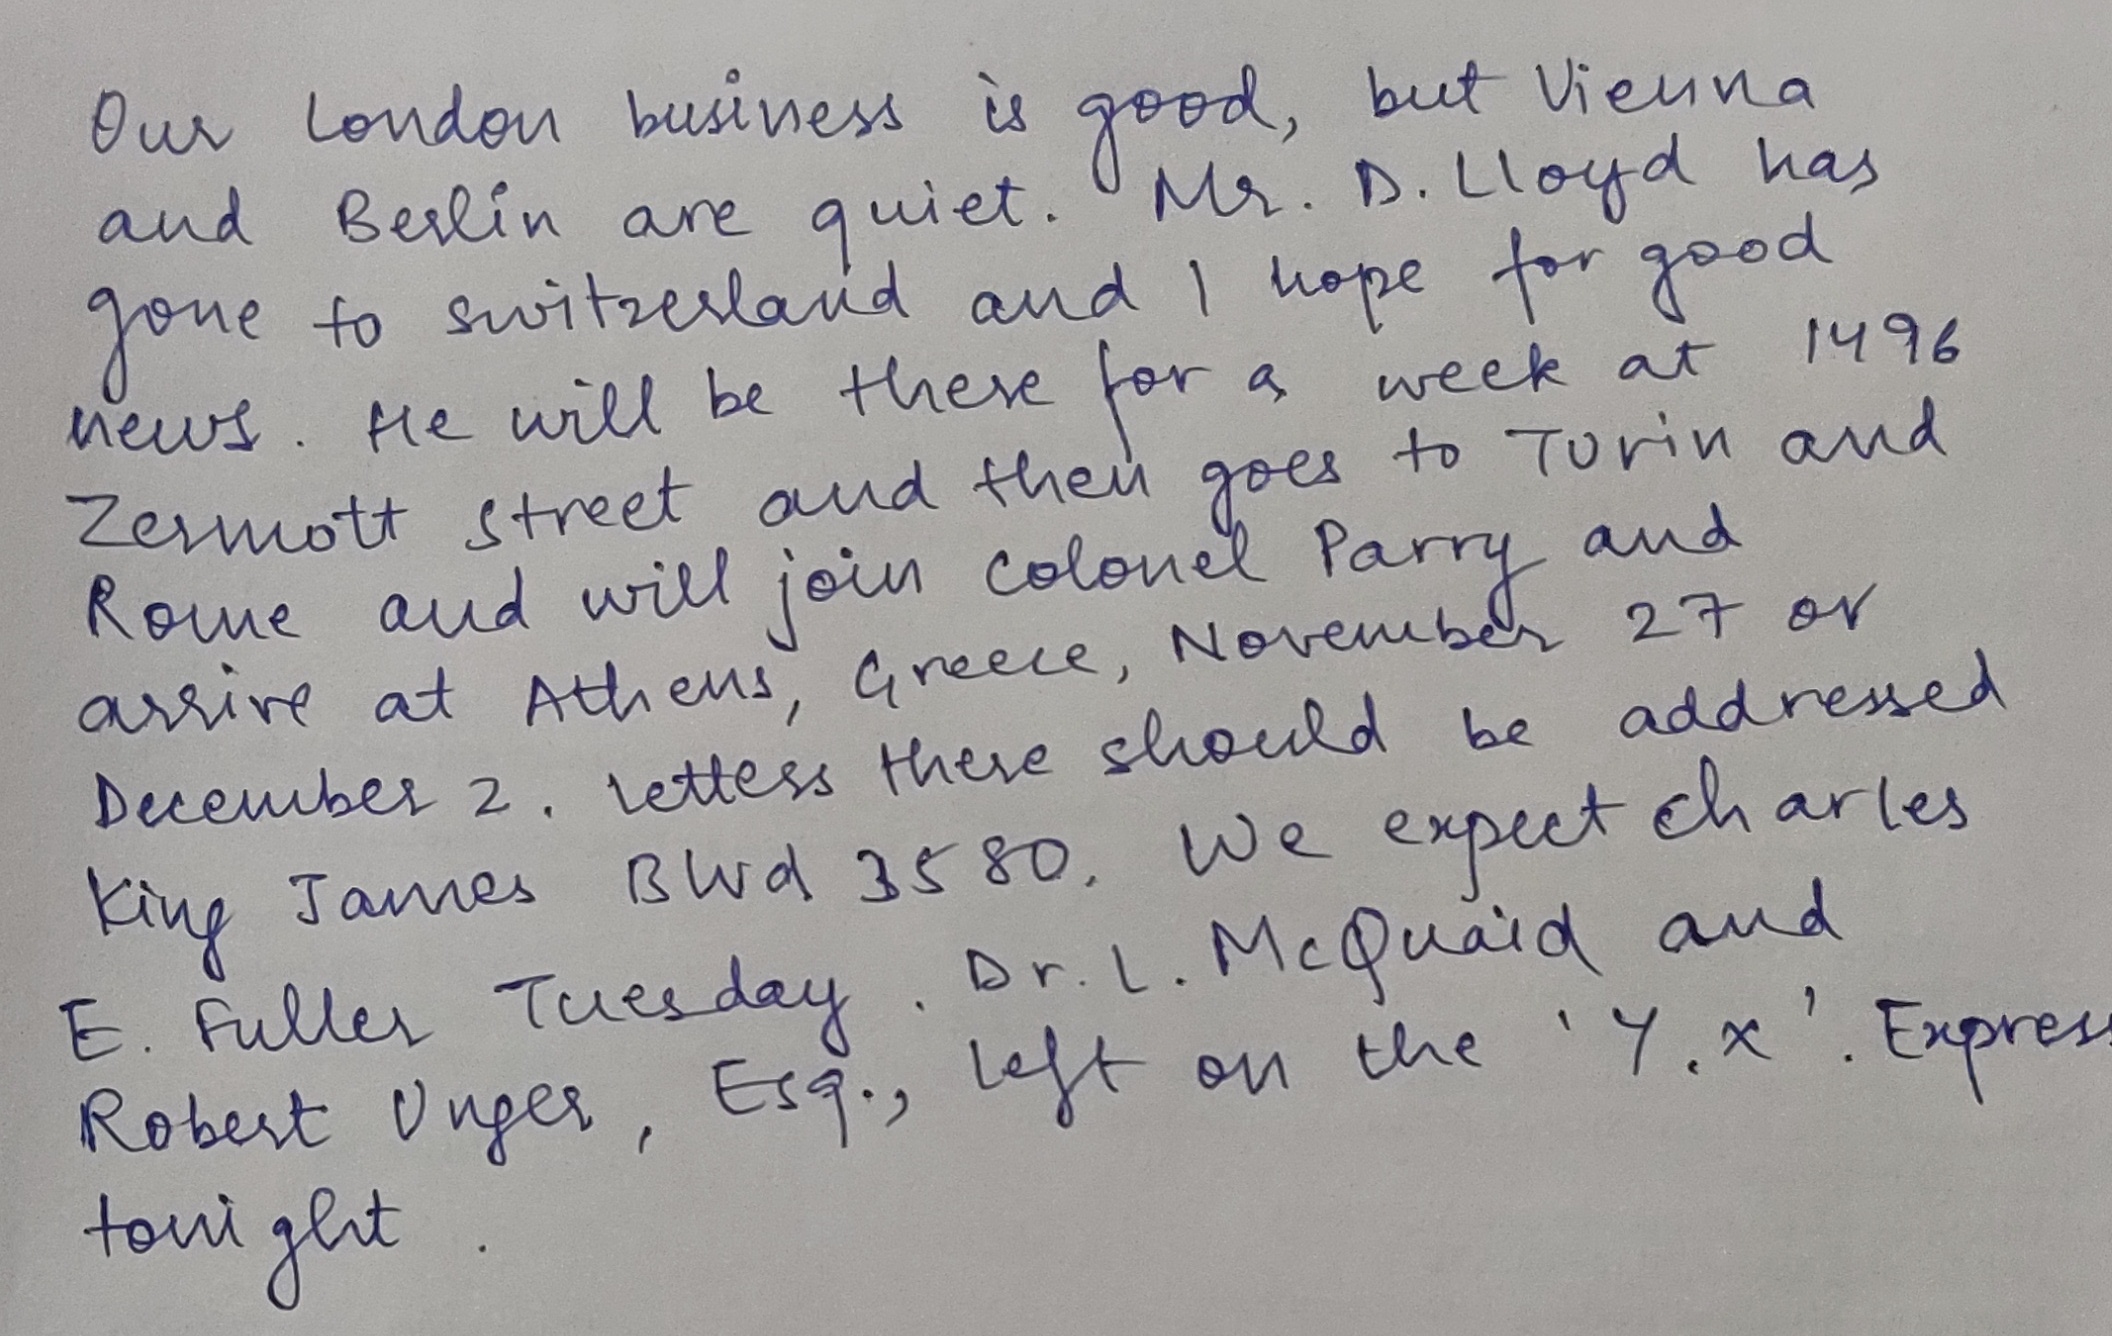 Our London business is good, but Vienna
and Berlin are quiet. Mr. D. Lloyd has
gone to Switzerland and I hope for good
news. He will be there for a week at 1496
Zermott street and then goes to Turin and
Rome and will join Colonel Parry and
arrive at Athens, Greece, November 27 or
December 2. Letters there should be addressed
King James Blvd 3580. We expect Charles
E. Fuller Tuesday. Dr. L. McQuaid and
Robert Unger, Esq., left on the 'Y.X'. Express
tonight.